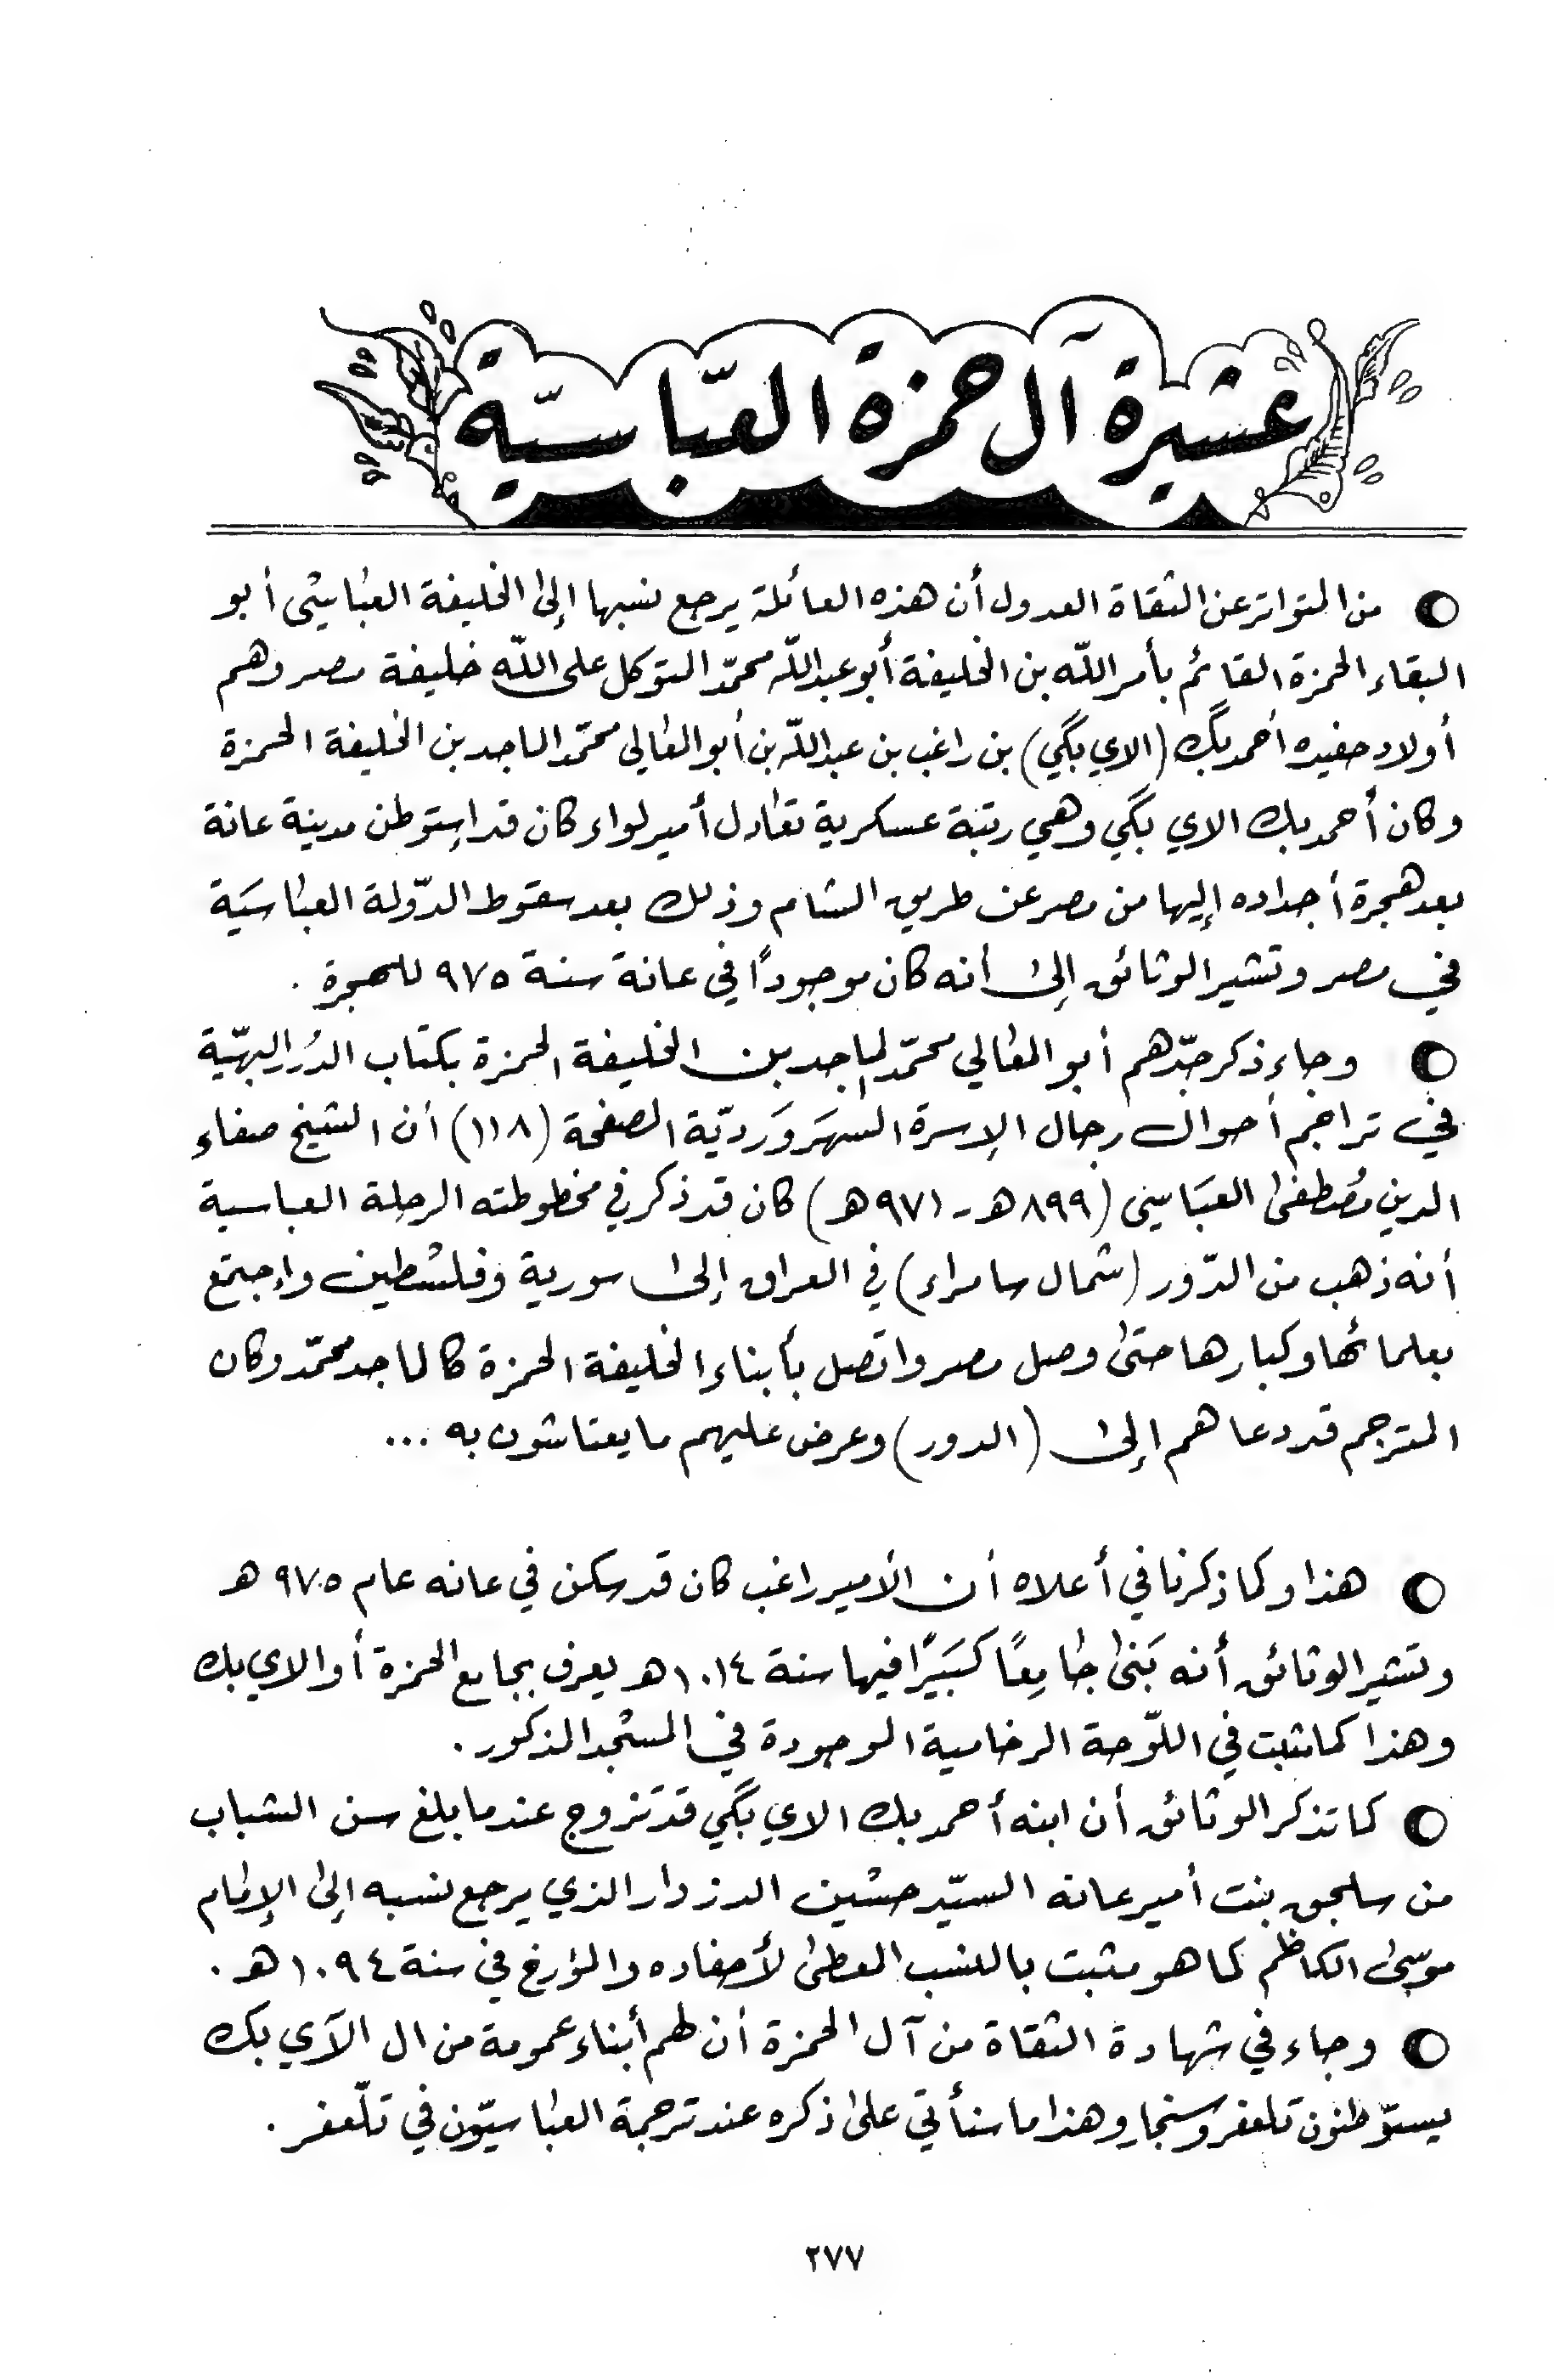 عشيرة آل حمزة العبّاسيّة
من المتواتر عن الثقاة العدول أن هذه العائلة يرجع نسبها إلى الخليفة العباسي أبو
البقاء الحمزة القائم بأمر اللّه بن الخليفة أبو عبد اللّه محمّد المتوكل على اللّه خليفة مصر وهم
أولاد حفيده أحمد بگ (الاي بگي) بن راغب بن عبد اللّه بن أبو المعالي محمّد الماجد بن الخليفة الحمزة
وكان أحمد بك الاي بگي وهي رتبة عسكرية تعادل أمير لواء وكان قد إستوطن مدينة عانة
بعد هجرة أجداده إليها من مصر عن طريق الشام وذلك بعد سقوط الدّولة العباسيَة
في مصر وتشير الوثائق إلى أنه كان موجودًا في عانة سنة ٩٧٥ للهجرة .
وجاء ذكر جدّهم أبو المعالي محمّد الماجد بن الخليفة الحمزة بكتاب الدُرر البهيّة
في تراجم أحوال رجال الإسرة السهرَوَرديّة الصفحة (١١٨) أن الشيخ صفاء
الدين مُصطفى العبَاسي (٨٩٩هـ ـ ٩٧١هـ) كان قد ذكر في مخطوطته الرحلة العباسية
أنه ذهب من الدّور (شمال سامراء) في العراق إلى سورية وفلسطين وإجتمع
بعلمائها وكبارها حتى وصل مصر واتصل بأبناء الخليفة الحمزة كالماجد محمّد وكان
المترجم قد دعاهم إلى (الدور) وعرض عليهم ما يعتاشون به ...
هذا وكما ذكرنا في أعلاه أن الأمير راغب كان قد سكن في عانه عام ٩٧٥ هـ
وتشير الوثائق أنه بَنى جامِعًا كبَيًرا فيها سنة ١٠١٤ هـ يعرف بجامع الحمزة أو الاي بك
وهذا كما ثبت في اللّوحة الرخامية الموجودة في المسجد المذكور .
كما تذكر الوثائق أن ابنه أحمد بك الاي بگي قد تزوج عندما بلغ سن الشباب
من سلجق بنت أمير عانه السيّد حسين الدزدار الذي يرجع نسبه إلى الإمام
موسى الكاظم كما هو مثبت بالنسب المعطى لأحفاده والمؤرخ في سنة ١٠٩٤ هـ .
وجاء في شهادة الثقاة من آل الحمزة أن لهم أبناء عمومة من ال الآي بك
يستوّطنون تلعفر وسنجار وهذا ما سنأتي على ذكره عند ترجمة العباسيّون في تلّعفر .
٢٧٧